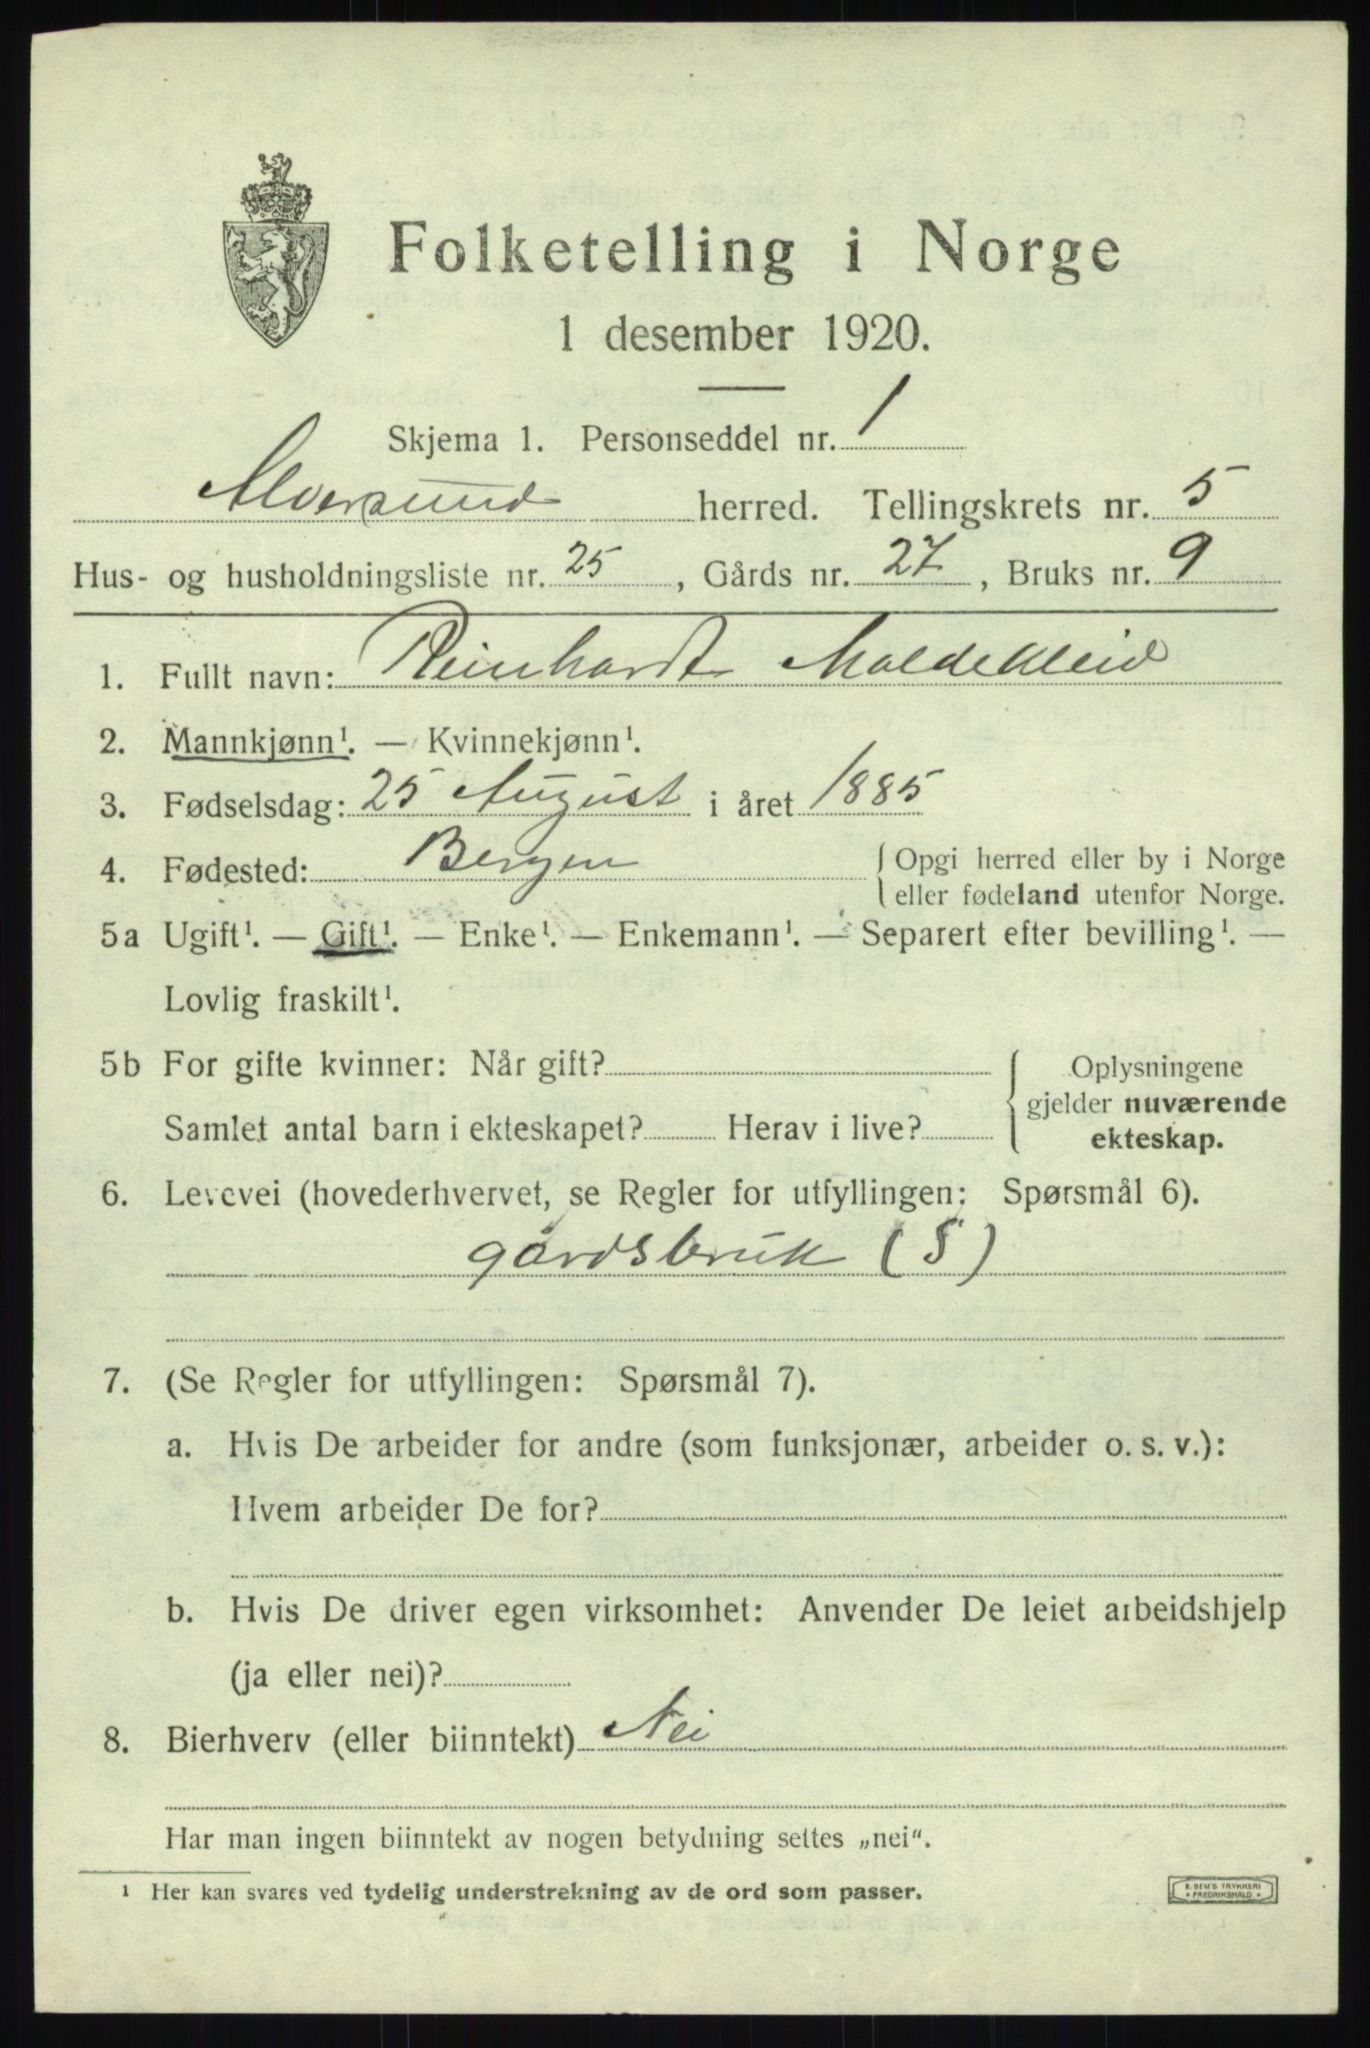 Folketelling i Norge
1 desember 1920.
Skjema 1. Personseddel nr. 1
Alversund herred. Tellingskrets nr. 5
Hus- og husholdningsliste nr. 25, Gårds nr. 27, Bruks nr. 9
1. Fullt navn: Reinhardt Moldekleiv
2. Mannkjønn¹. — Kvinnekjønn¹.
3. Fødselsdag: 25 August i året 1885
4. Fødested: Bergen { Opgi herred eller by i Norge
eller fødeland utenfor Norge.
5a Ugift¹. — Gift¹. — Enke¹. — Enkemann¹. — Separert efter bevilling¹. —
Lovlig fraskilt¹.
5b For gifte kvinner: Når gift? { Oplysningene
gjelder nuværende
Samlet antal barn i ekteskapet? Herav i live? ekteskap.
6. Levevei (hovederhvervet, se Regler for utfyllingen: Spørsmål 6).
gårdsbruk (S)
7. (Se Regler for utfyllingen: Spørsmål 7).
a. Hvis De arbeider for andre (som funksjonær, arbeider o. s. v.):
Hvem arbeider De for?
b. Hvis De driver egen virksomhet: Anvender De leiet arbeidshjelp
(ja eller nei)?
8. Bierhverv (eller biinntekt) Nei
Har man ingen biinntekt av nogen betydning settes „nei".
¹ Her kan svares ved tydelig understrekning av de ord som passer.
E. SEM'S TRYKKERI
• FREDRIKSHALD •